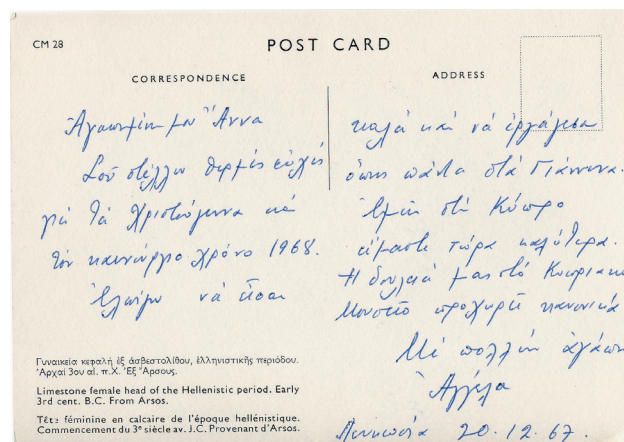 CM 28
POST CARD
CORRESPONDENCE
ADDRESS
Ἀγαπημένη μου Ἄννα
Σοῦ στέλλω θερμές εὐχές
γιά τά Χριστούγεννα καί
τόν καινούργιο χρόνο 1968.
Ἐλπίζω νά εἶσαι
καλά καί νά ἐργάζεσαι
ὅπως πάντα στά Γιάννενα.
Ἐμεῖς στή Κύπρο
εἴμαστε τώρα καλύτερα.
Ἡ δουλειά μας στό Κυπριακό
Μουσεῖο προχωρεῖ κανονικά
Μέ πολλήν ἀγάπη
Ἀγγέλα
Λευκωσία 20.12.67.
Γυναικεία κεφαλή ἐξ ἀσβεστολίθου, ἑλληνιστικῆς περιόδου.
Ἀρχαί 3ου αἰ. π.Χ. Ἐξ Ἄρσους.
Limestone female head of the Hellenistic period. Early
3rd cent. B.C. From Arsos.
Tête féminine en calcaire de l'époque hellénistique.
Commencement du 3e siècle av. J.C. Provenant d'Arsos.